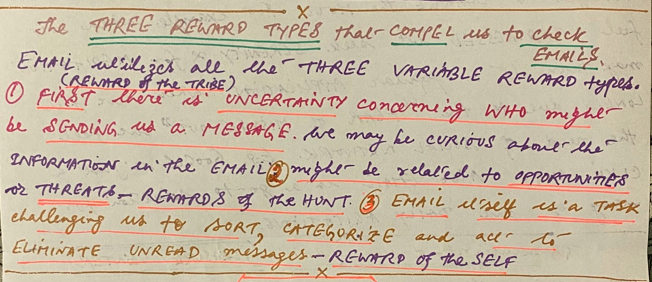 X
The THREE REWARD TYPES that COMPEL us to check
EMAILS.
EMAIL utilizes all the THREE VARIABLE REWARD types.
(REWARD of the TRIBE)
① FIRST there is UNCERTAINTY concerning WHO might
be SENDING us a MESSAGE. We may be CURIOUS about the
INFORMATION in the EMAIL ② might be related to OPPORTUNITIES
or THREATS – REWARDS of the HUNT. ③ EMAIL itself is a TASK
challenging us to SORT, CATEGORIZE and act to
ELIMINATE UNREAD messages – REWARD of the SELF
X